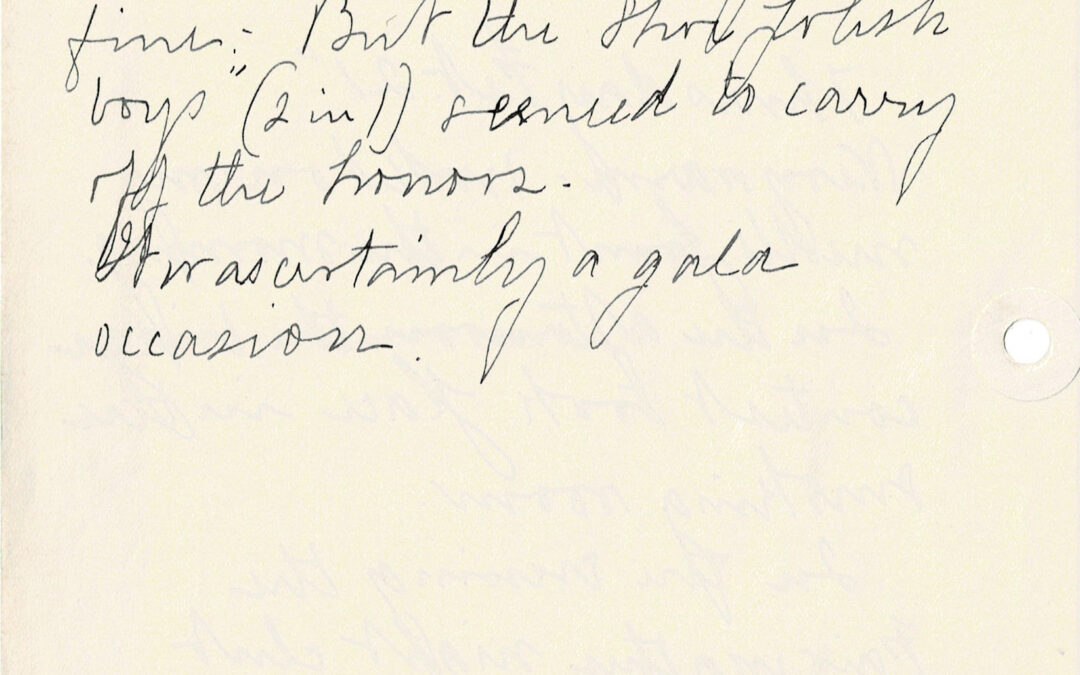 fine; But the Shoe Polish
boys" (2 in 1) seemed to carry
off the honors.
It was certainly a gala
occasion.